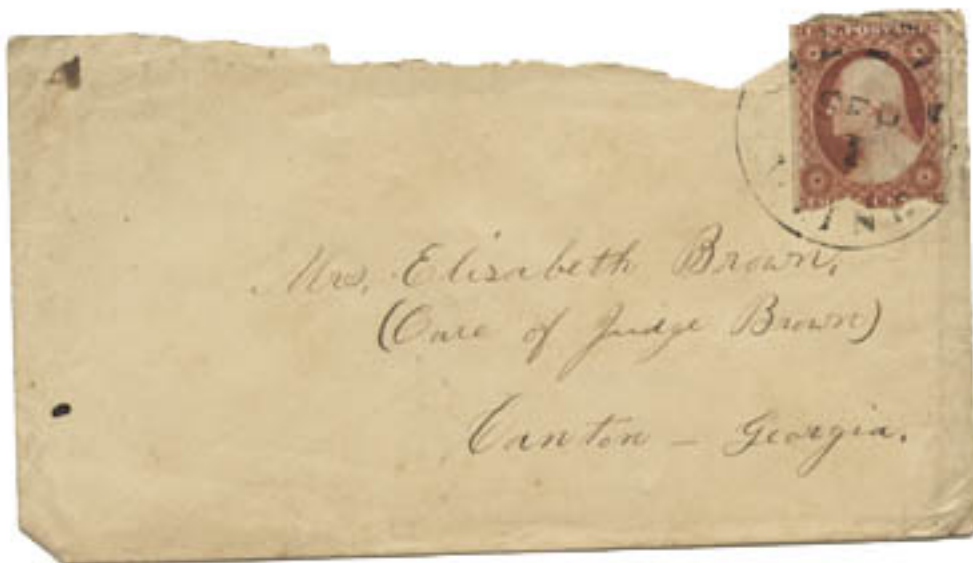 U.S. POSTAGE
SEP
IND
Mrs. Elisabeth Brown,
(Care of Judge Brown)
Canton — Georgia.